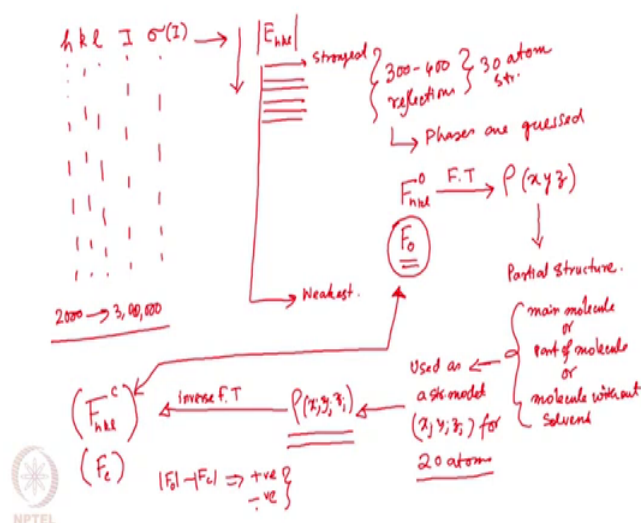 h k l I σ(I) → |E_hkl|
strongest
300-400 reflection
30 atom str.
Phases are guessed
F°_hkl F.T → ρ(xyz)
F_o
Partial Structure.
Weakest.
2000 → 3,00,000
main molecule
or
part of molecule
or
molecule without
solvent
Used as
a str. model
(x,y,z,) for
20 atoms
ρ(x,y,z,)
inverse F.T
(F^c_hkl)
(F_c)
|F_o|-|F_c| ⇒ +ve
-ve
NPTEL